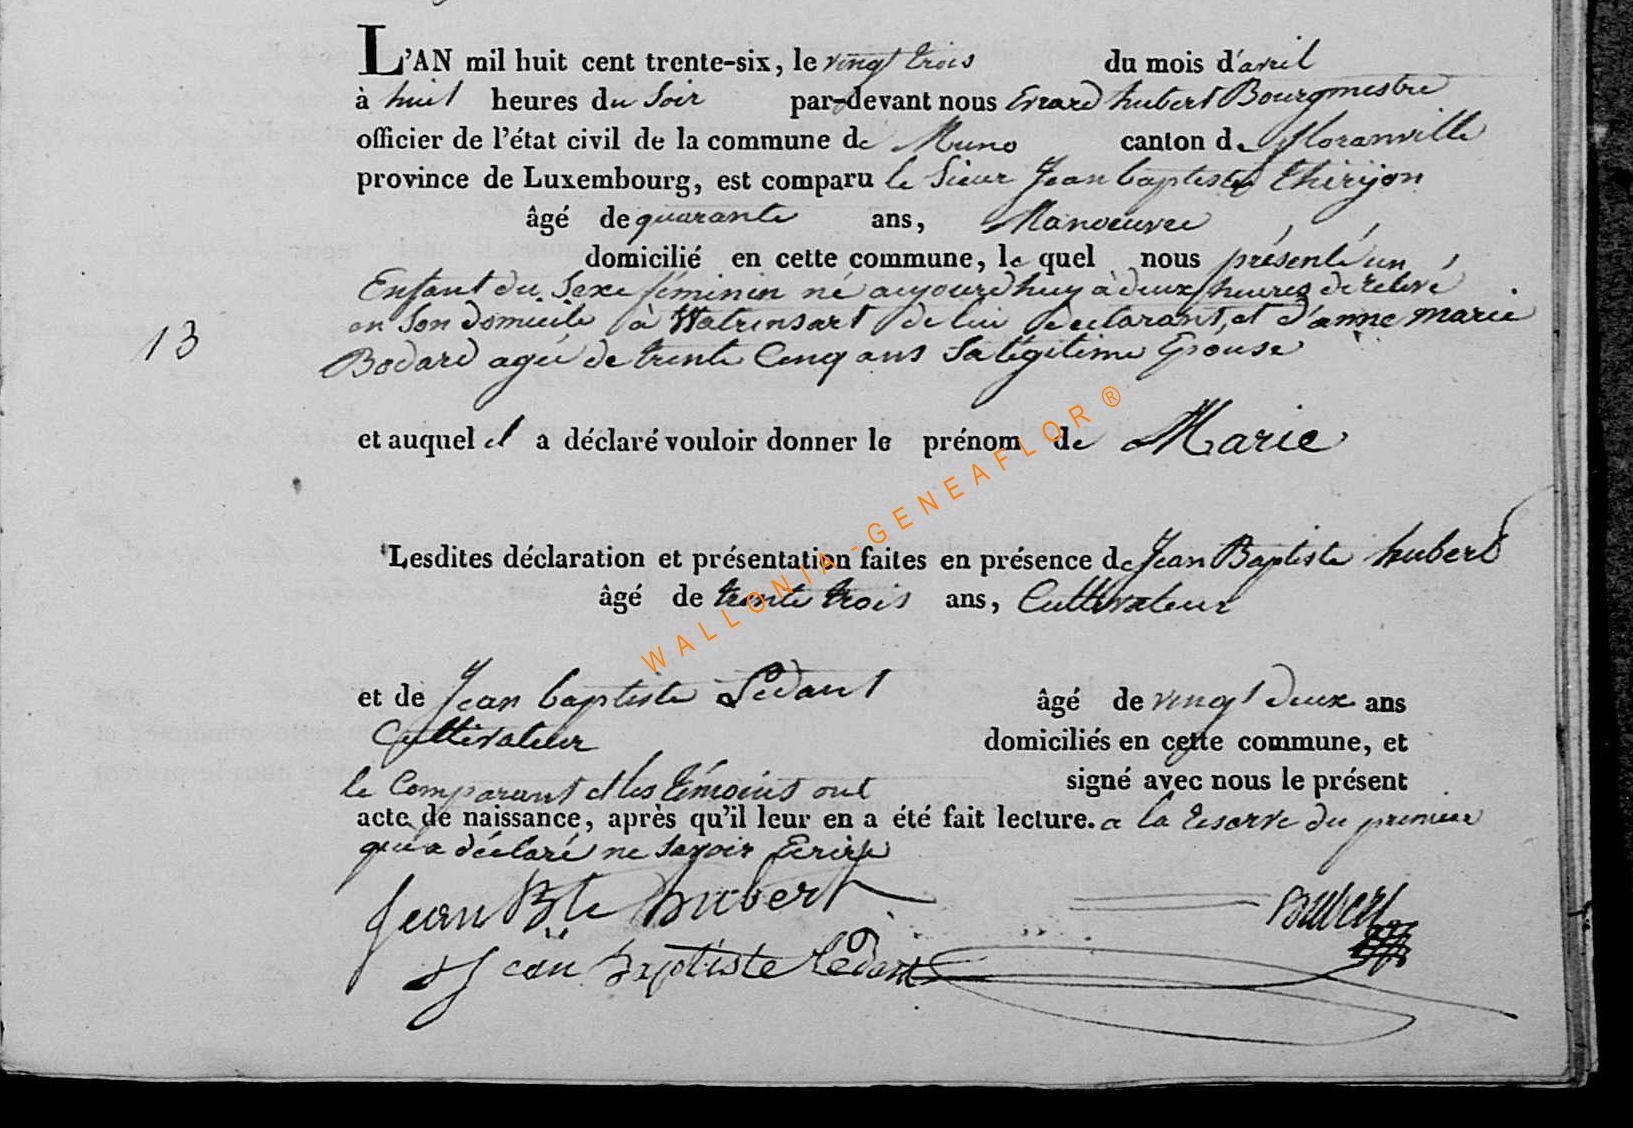 L'AN mil huit cent trente-six, le vingt trois du mois d'avril
à huit heures du Soir par-devant nous Evrard hubert Bourgmestre
officier de l'état civil de la commune de Muno canton de floranville
province de Luxembourg, est comparu le Sieur Jean baptiste thirÿon
âgé de quarante ans, Manoeuvre
domicilié en cette commune, le quel nous présenté un
Enfant du Sexe féminin né aujourdhuy à deux heures de relevé
en Son domicile à Watrinsart de lui declarant, et d'anne marie
13
Bodard agée de trente Cinq ans Sa légitime Epouse
et auquel il a déclaré vouloir donner le prénom de Marie
Lesdites déclaration et présentation faites en présence de Jean Baptiste hubert
âgé de trente trois ans, Cultivateur
et de Jean baptiste Lédant âgé de vingt deux ans
Cultivateur domiciliés en cette commune, et
le Comparant et les témoins ont signé avec nous le présent
acte de naissance, après qu'il leur en a été fait lecture. a la reserve du premier
qui a déclaré ne Savoir Ecrire
Jean Bte hubert
Jean baptiste lédant
WALLONIA-GENEAFLOR®